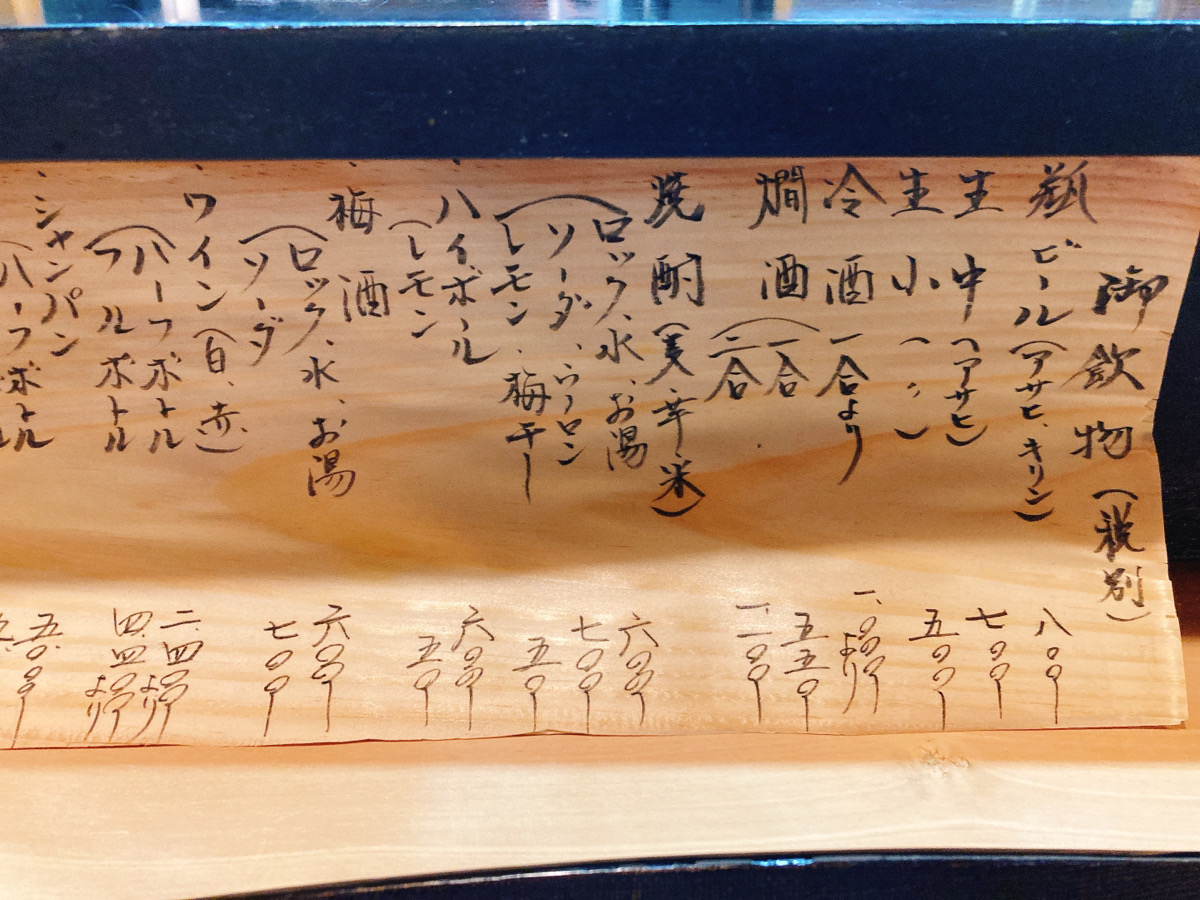 御飲物(税別)
瓶ビール(アサヒ、キリン) 八〇〇
生中(アサヒ) 七〇〇
生小(〃) 五〇〇
冷酒一合より 一、〇〇〇より
燗酒(一合 五五〇
二合 一、一〇〇
焼酎(麦・芋・米)
ロック、水、お湯 六〇〇
ソーダ、ウーロン 七〇〇
レモン、梅干し 五〇
、ハイボール 六〇〇
(レモン 五〇
、梅酒
ロック、水、お湯 六〇〇
ソーダ 七〇〇
、ワイン(白、赤)
ハーフボトル 二、四〇〇より
フルボトル 四、四〇〇より
、シャンパン
(ハーフボトル 五、〇〇〇